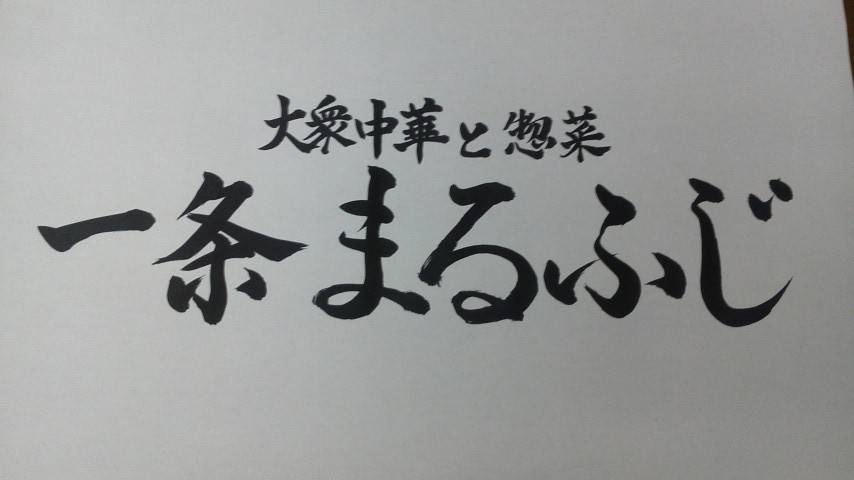 大衆中華と惣菜
一条 まるふじ